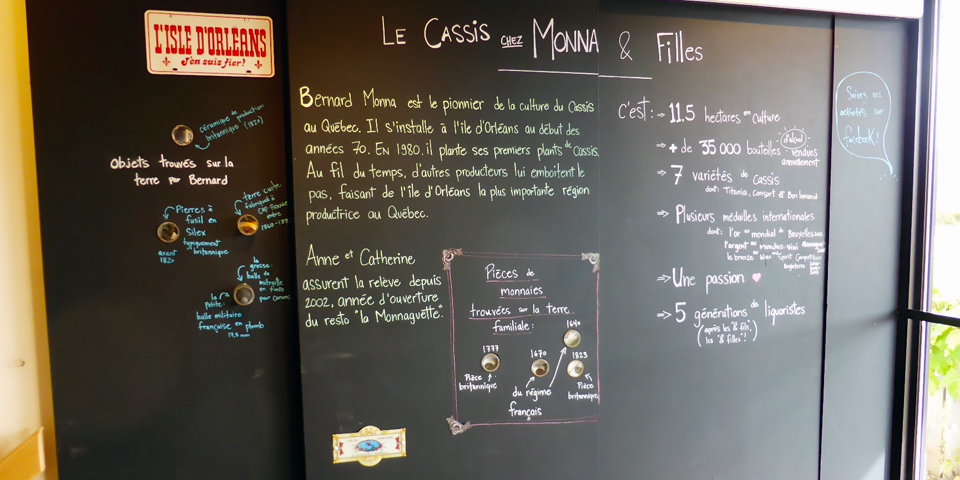 L'ISLE D'ORLÉANS
J'en suis fier!
céramique de production
britannique (1820)
Objets trouvés sur la
terre par Bernard
Pierres à
fusil en
Silex
typiquement
britannique
avant
1820
terre cuite
fabriquée à
Cap Rouge
entre
la
grosse:
balle de
mitraille
en fonte
pour canons
la
petite:
balle militaire
française en plomb
LE CASSIS CHEZ MONNA & Filles
Bernard Monna est le pionnier de la culture du Cassis
au Québec. Il s'installe à l'île d'Orléans au début des
années 70. En 1980, il plante ses premiers plants de Cassis.
Au fil du temps, d'autres producteurs lui emboîtent le
pas, faisant de l'île d'Orléans la plus importante région
productrice au Québec.
Anne et Catherine
assurent la relève depuis
2002, année d'ouverture
du resto "la Monnaguette".
Pièces de
monnaies
trouvées sur la terre
familiale:
1777
Pièce
britannique
1670
1640
du régime
français
1823
Pièce
britannique
c'est:
⇒ 11.5 hectares en culture
⇒ + de 35 000 bouteilles d'alcool vendues
annuellement
⇒ 7 variétés de cassis
dont: Titania, Consort & Ben lomond
⇒ Plusieurs médailles internationales
dont: l'or au mondial de Bruxelles
l'argent au mundus Vini
le bronze Wine and Spirit Competition
⇒ Une passion ♥
⇒ 5 générations de liquoristes
(après les "& fils",
les "& filles"!)
Suivez nos
activités sur
facebook!